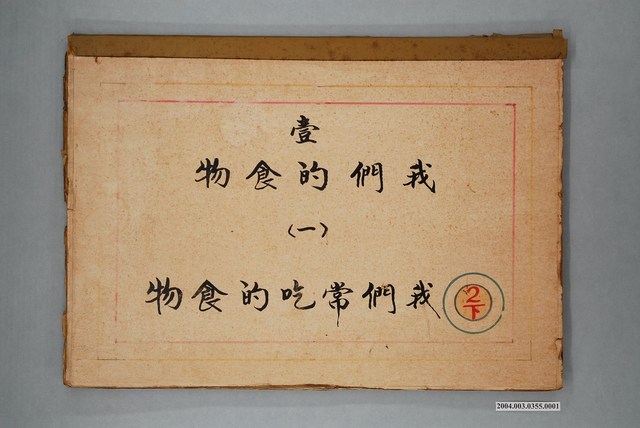 壹
我們的食物
(一)
我們常吃的食物
2下
2004.003.0355.0001